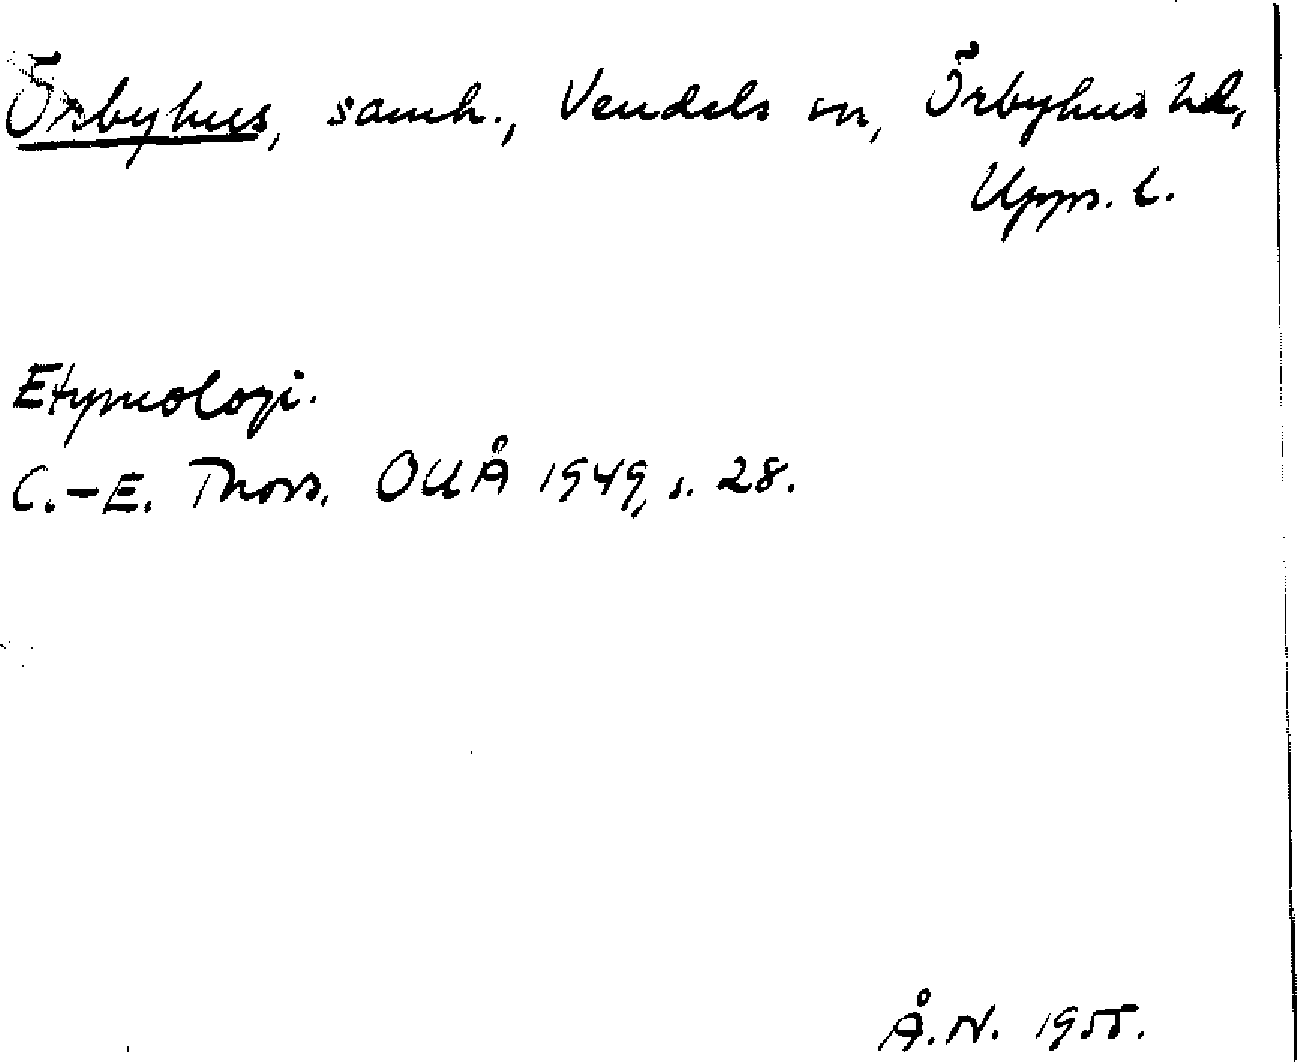 Örbyhus, samh., Vendels sn, Örbyhus hd,
Upps. l.
Etymologi.
C.-E. Thors, OUÅ 1949, s. 28.
Å.N. 1955.